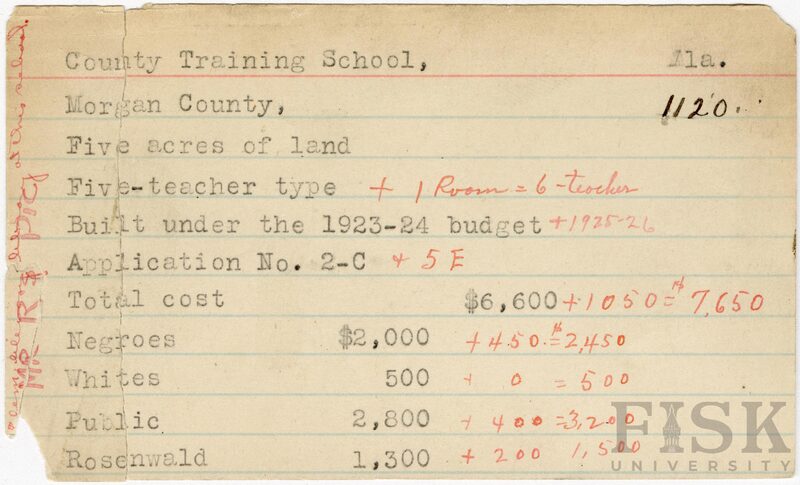 County Training School, Ala.
Morgan County, 1120.
Five acres of land
Five-teacher type + 1 Room = 6-teacher
Built under the 1923-24 budget +1925-26
Application No. 2-C + 5 E
Total cost $6,600 +1050 = $7,650
Negroes $2,000 +450.= $2,450
Whites 500 + 0 = 500
Public 2,800 + 400 =3,200
Rosenwald 1,300 + 200 1,500
MR R.S. PIC
at this school.
FISK
UNIVERSITY